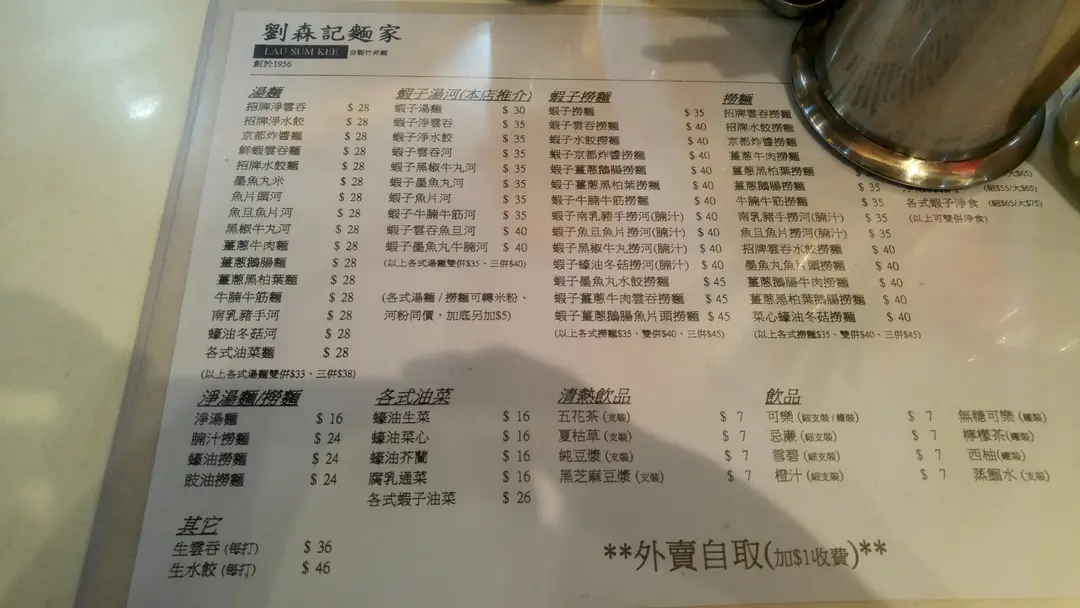 劉森記麵家
LAU SUM KEE 自製竹昇麵
創於1956
湯麵
招牌淨雲吞 $ 28
招牌淨水餃 $ 28
京都炸醬麵 $ 28
鮮蝦雲吞麵 $ 28
招牌水餃麵 $ 28
墨魚丸米 $ 28
魚片頭河 $ 28
魚旦魚片河 $ 28
黑椒牛丸河 $ 28
薑蔥牛肉麵 $ 28
薑蔥鵝腸麵 $ 28
薑蔥黑柏葉麵 $ 28
牛腩牛筋麵 $ 28
南乳豬手河 $ 28
蠔油冬菇河 $ 28
各式油菜麵 $ 28
(以上各式湯麵雙併$33、三併$38)
蝦子湯河(本店推介)
蝦子湯麵 $ 30
蝦子淨雲吞 $ 35
蝦子淨水餃 $ 35
蝦子雲吞河 $ 35
蝦子黑椒牛丸河 $ 35
蝦子墨魚丸河 $ 35
蝦子魚片河 $ 35
蝦子牛腩牛筋河 $ 35
蝦子雲吞魚旦河 $ 40
蝦子墨魚丸牛腩河 $ 40
(以上各式湯麵雙併$35、三併$40)
(各式湯麵 / 撈麵可轉米粉、
河粉同價，加底另加$5)
蝦子撈麵
蝦子撈麵 $ 35
蝦子雲吞撈麵 $ 40
蝦子水餃撈麵 $ 40
蝦子京都炸醬撈麵 $ 40
蝦子薑蔥鵝腸撈麵 $ 40
蝦子薑蔥黑柏葉撈麵 $ 40
蝦子牛腩牛筋撈麵 $ 40
蝦子南乳豬手撈河(腩汁) $ 40
蝦子魚旦魚片撈河(腩汁) $ 40
蝦子黑椒牛丸撈河(腩汁) $ 40
蝦子蠔油冬菇撈河(腩汁) $ 40
蝦子墨魚丸水餃撈麵 $ 45
蝦子薑蔥牛肉雲吞撈麵 $ 45
蝦子薑蔥鵝腸魚片頭撈麵 $ 45
(以上各式撈麵$35、雙併$40、三併$45)
撈麵
招牌雲吞撈麵
招牌水餃撈麵
京都炸醬撈麵
薑蔥牛肉撈麵
薑蔥黑柏葉撈麵
薑蔥鵝腸撈麵 $ 35
牛腩牛筋撈麵 $ 35
南乳豬手撈河(腩汁) $ 35
魚旦魚片撈河(腩汁) $ 35
招牌雲吞水餃撈麵 $ 40
墨魚丸魚片頭撈麵 $ 40
薑蔥鵝腸牛肉撈麵 $ 40
薑蔥黑柏葉鵝腸撈麵 $ 40
菜心蠔油冬菇撈麵 $ 40
(以上各式撈麵$35、雙併$40、三併$45)
(細$55/大$65)
各式蝦子淨食 (細$65/大$75)
(以上可雙併淨食)
淨湯麵/撈麵
淨湯麵 $ 16
腩汁撈麵 $ 24
蠔油撈麵 $ 24
豉油撈麵 $ 24
各式油菜
蠔油生菜 $ 16
蠔油菜心 $ 16
蠔油芥蘭 $ 16
腐乳通菜 $ 16
各式蝦子油菜 $ 26
清熱飲品
五花茶 (支裝) $ 7
夏枯草 (支裝) $ 7
純豆漿 (支裝) $ 7
黑芝麻豆漿 (支裝) $ 7
飲品
可樂 (細支裝 / 罐裝) $ 7
忌廉 (細支裝) $ 7
雪碧 (細支裝) $ 7
橙汁 (細支裝) $ 7
無糖可樂 (罐裝)
檸檬茶(罐裝)
西柚(罐裝)
蒸餾水 (支裝)
其它
生雲吞 (每打) $ 36
生水餃 (每打) $ 46
**外賣自取(加$1收費)**